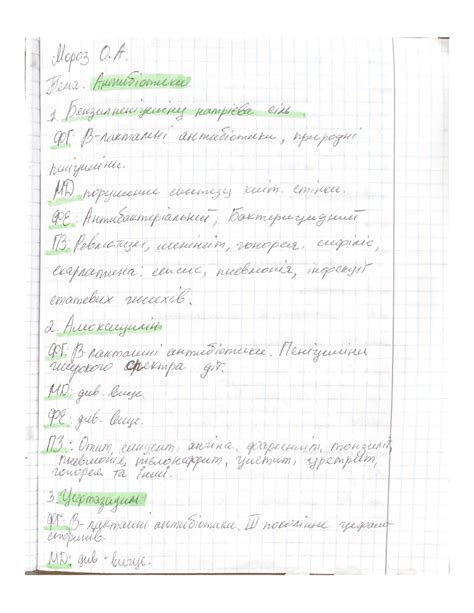 Мороз О.А.
Тема. Антибіотики
1. Бензилпеніциліну натрієва сіль
ФГ: В-лактамні антибіотики, природні
пеніциліни.
МД порушення синтезу кліт. стінки.
ФЕ: Антибактеріальний, Бактерицидний
ПЗ: менінгіт, гонорея. сифіліс,
скарлатина. сепсис, пневмонія, інфекції
статевих шляхів.
2. Амоксицилін
ФГ: В-лактамні антибіотики. Пеніциліни
широкого спектра дії.
МД: див. вище.
ФЕ: див. вище.
ПЗ: Отит, синусит, ангіна, фарингіт, тонзиліт,
пневмонія, пієлонефрит, цистит, уретрит,
гонорея та інші.
3. Цефтазидим
ФГ: В-лактамні антибіотики. III покоління цефало-
споринів.
МД: див. вище.